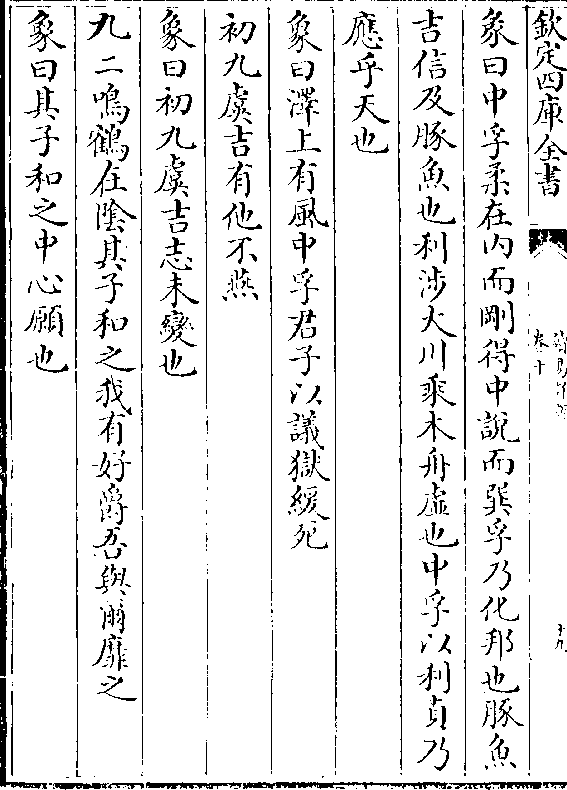 欽定四庫全書
卷十
十九
彖曰中孚柔在内而剛得中說而巽孚乃化邦也豚魚
吉信及豚魚也利涉大川乘木舟虛也中孚以利貞乃
應乎天也
象曰澤上有風中孚君子以議獄緩死
初九虞吉有他不燕
象曰初九虞吉志未變也
九二鳴鶴在陰其子和之我有好爵吾與爾靡之
象曰其子和之中心願也